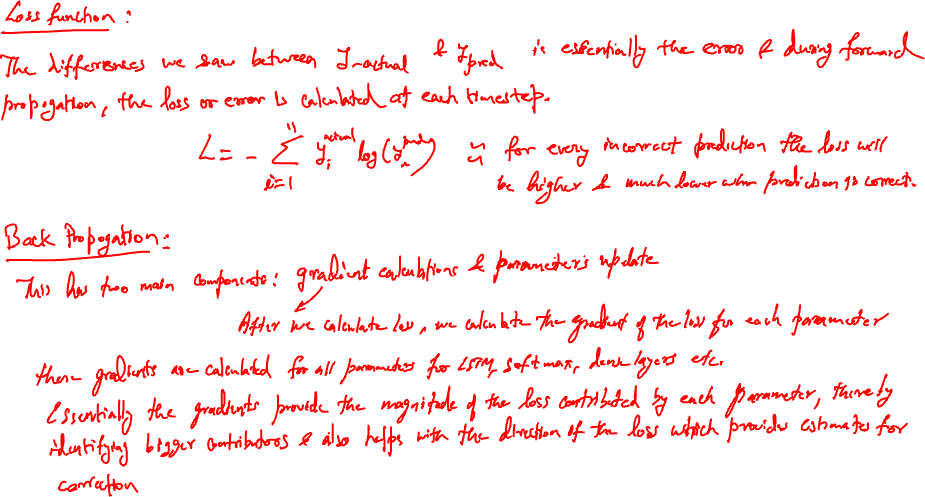 Loss function :
The differences we saw between y-actual & y pred is essentially the error & during forward
propogation, the loss or error is calculated at each timestep.
L = - Σ i=1 n y_i^actual log(y_i^pred) ⇒ for every incorrect prediction the loss will
be higher & much lower when prediction is correct.
Back Propogation :
This has two main components : gradient calculations & parameter's update
After we calculate loss, we calculate the gradient of the loss for each parameter
these gradients are calculated for all parameters for LSTM, softmax, dense layers etc.
Essentially the gradients provide the magnitude of the loss contributed by each parameter, thereby
identifying bigger contributors & also helps with the direction of the loss which provides estimates for
correction